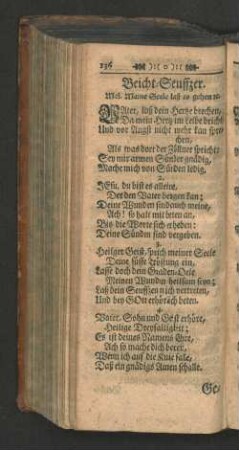 236
Beicht-Seuffzer.
Mel. Meine Seele laß es gehen ꝛc.
VAter, laß dein Hertze brechen,
Da mein Hertz im Leibe bricht
Und vor Angst nicht mehr kan spre-
chen,
Als was dort der Zöllner spricht:
Sey mir armen Sünder gnädig,
Mache mich von Sünden ledig.
2.
JEsu, du bist es alleine,
Der den Vater beugen kan;
Deine Wunden sind meine,
Ach! so halt mit beten an,
Bis die Worte sich erheben:
Deine Sünden sind vergeben.
3.
Heilger Geist, sprich meiner Seele
Deine süsse Tröstung ein,
Lasse doch dein Gnaden-Oele
Meinen Wunden heilsam seyn;
Laß dein Seuffzen mich vertreten,
Und bey GOtt erhörlich beten.
4.
Vater, Sohn und Geist erhöre,
Heilige Dreyfaltigkeit;
Es ist deines Namens Ehre,
Ach so mache dich bereit,
Wenn ich auf die Knie falle,
Daß ein gnädigs Amen schalle.
Ge-